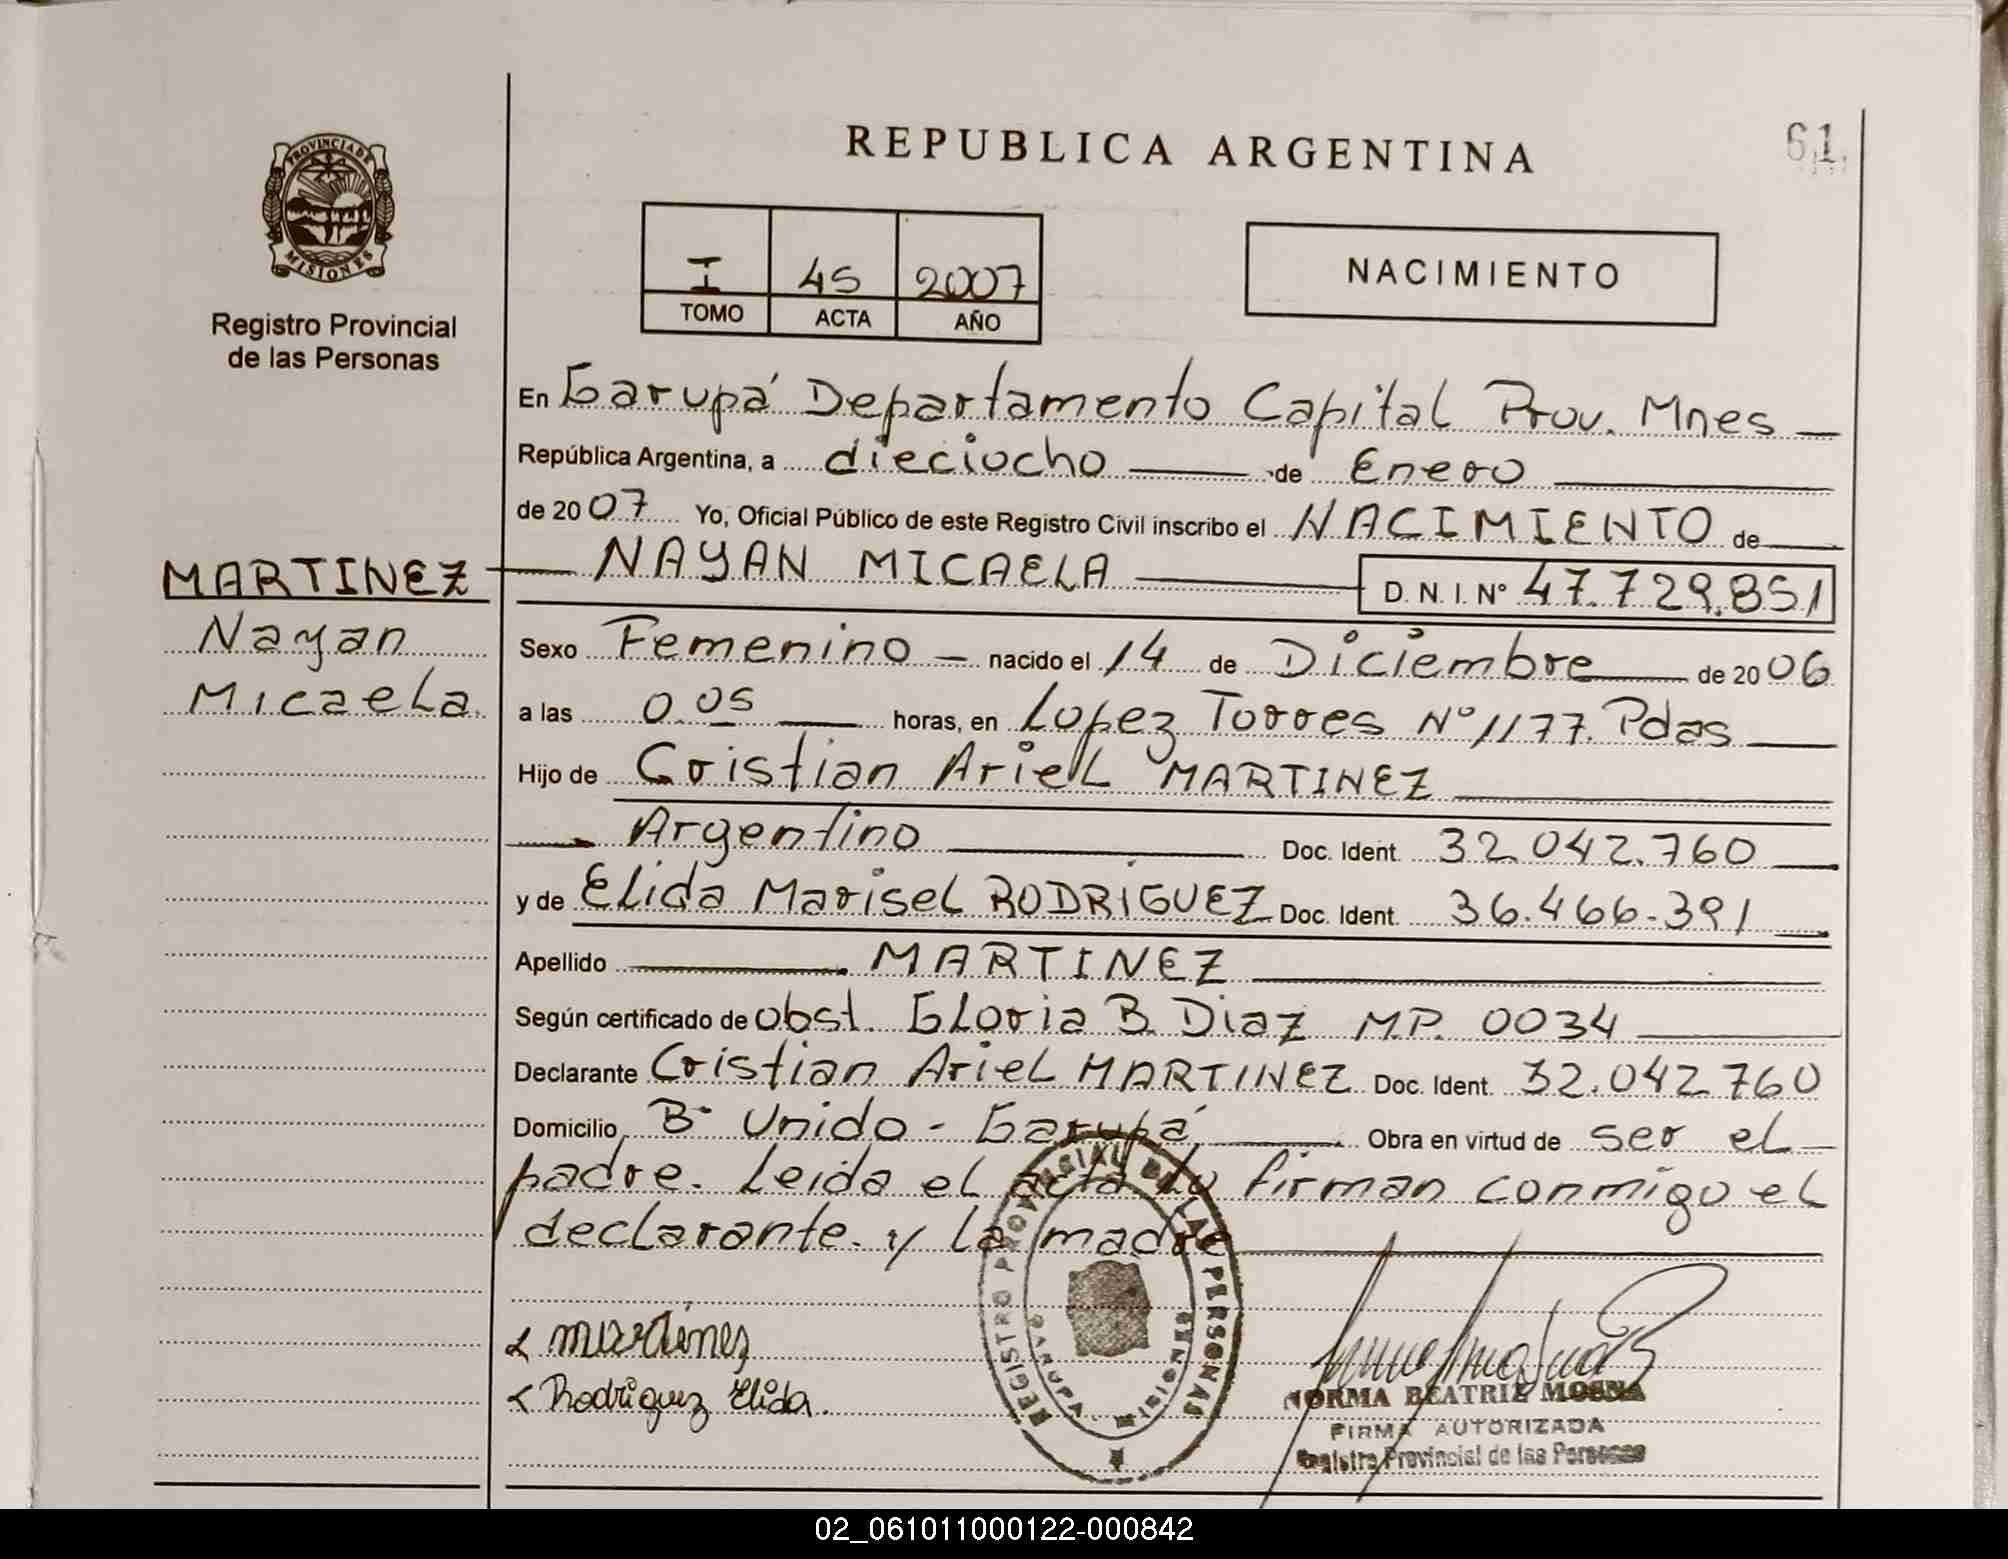 REPUBLICA ARGENTINA
61
PROVINCIA DE
MISIONES
Registro Provincial
de las Personas
I 45 2007
TOMO ACTA AÑO
NACIMIENTO
En Garupá Departamento Capital Prov. Mnes
República Argentina, a dieciocho de Enero
de 2007 Yo, Oficial Público de este Registro Civil inscribo el NACIMIENTO de
MARTINEZ
Nayan
Micaela
NAYAN MICAELA D. N. I. Nº 47.729.851
Sexo Femenino nacido el 14 de Diciembre de 2006
a las 0.05 horas, en Lopez Torres Nº 1177. Pdas
Hijo de Cristian Ariel MARTINEZ
Argentino Doc. Ident. 32.042.760
y de Elida Marisel RODRIGUEZ Doc. Ident. 36.466.391
Apellido MARTINEZ
Según certificado de obst. Gloria B. Diaz M.P. 0034
Declarante Cristian Ariel MARTINEZ Doc. Ident. 32.042760
Domicilio Bº Unido - Garupá Obra en virtud de ser el
padre. Leida el acta la firman conmigo el
declarante y la madre
martines
Rodriguez Elida.
REGISTRO PROVINCIAL DE LAS PERSONAS
GARUPA MISIONES
NORMA BEATRIZ MOSNA
FIRMA AUTORIZADA
Registro Provincial de las Personas
02_061011000122-000842